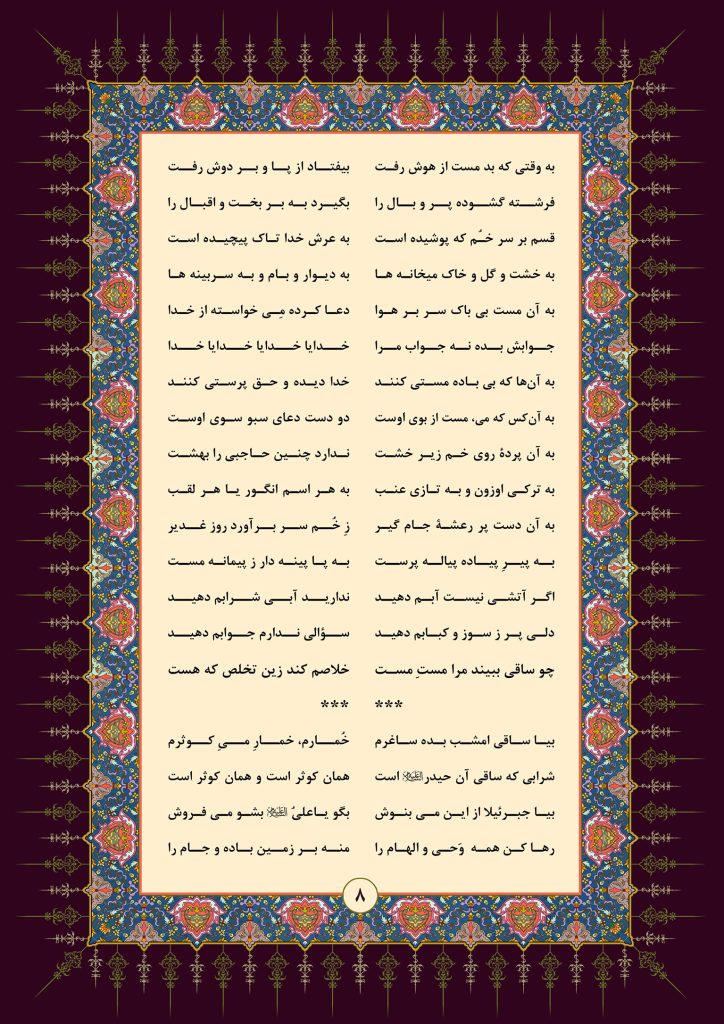 به وقتی که بد مست از هوش رفت بیفتاد از پا و بر دوش رفت
فرشته گشوده پر و بال را بگیرد به بر بخت و اقبال را
قسم بر سر خُم که پوشیده است به عرش خدا تاک پیچیده است
به خشت و گل و خاک میخانه ها به دیوار و بام و به سربینه ها
به آن مست بی باک سر بر هوا دعا کرده مِی خواسته از خدا
جوابش بده نه جواب مرا خدایا خدایا خدایا خدا
به آن‌ها که بی باده مستی کنند خدا دیده و حق پرستی کنند
به آن‌کس که می، مست از بوی اوست دو دست دعای سبو سوی اوست
به آن پردهٔ روی خم زیر خشت ندارد چنین حاجبی را بهشت
به ترکی اوزون و به تازی عنب به هر اسم انگور یا هر لقب
به آن دست پر رعشهٔ جام گیر زِ خُم سر برآورد روز غدیر
به پیرِ پیاده پیاله پرست به پا پینه دار ز پیمانه مست
اگر آتشی نیست آبم دهید ندارید آبی شرابم دهید
دلی پر ز سوز و کبابم دهید سؤالی ندارم جوابم دهید
چو ساقی ببیند مرا مستِ مست خلاصم کند زین تخلص که هست
*** ***
بیا ساقی امشب بده ساغرم خُمارم، خمارِ میِ کوثرم
شرابی که ساقی آن حیدر است همان کوثر است و همان کوثر است
بیا جبرئیلا از این می بنوش بگو یاعلی بشو می فروش
رها کن همه وَحی و الهام را منه بر زمین باده و جام را
۸